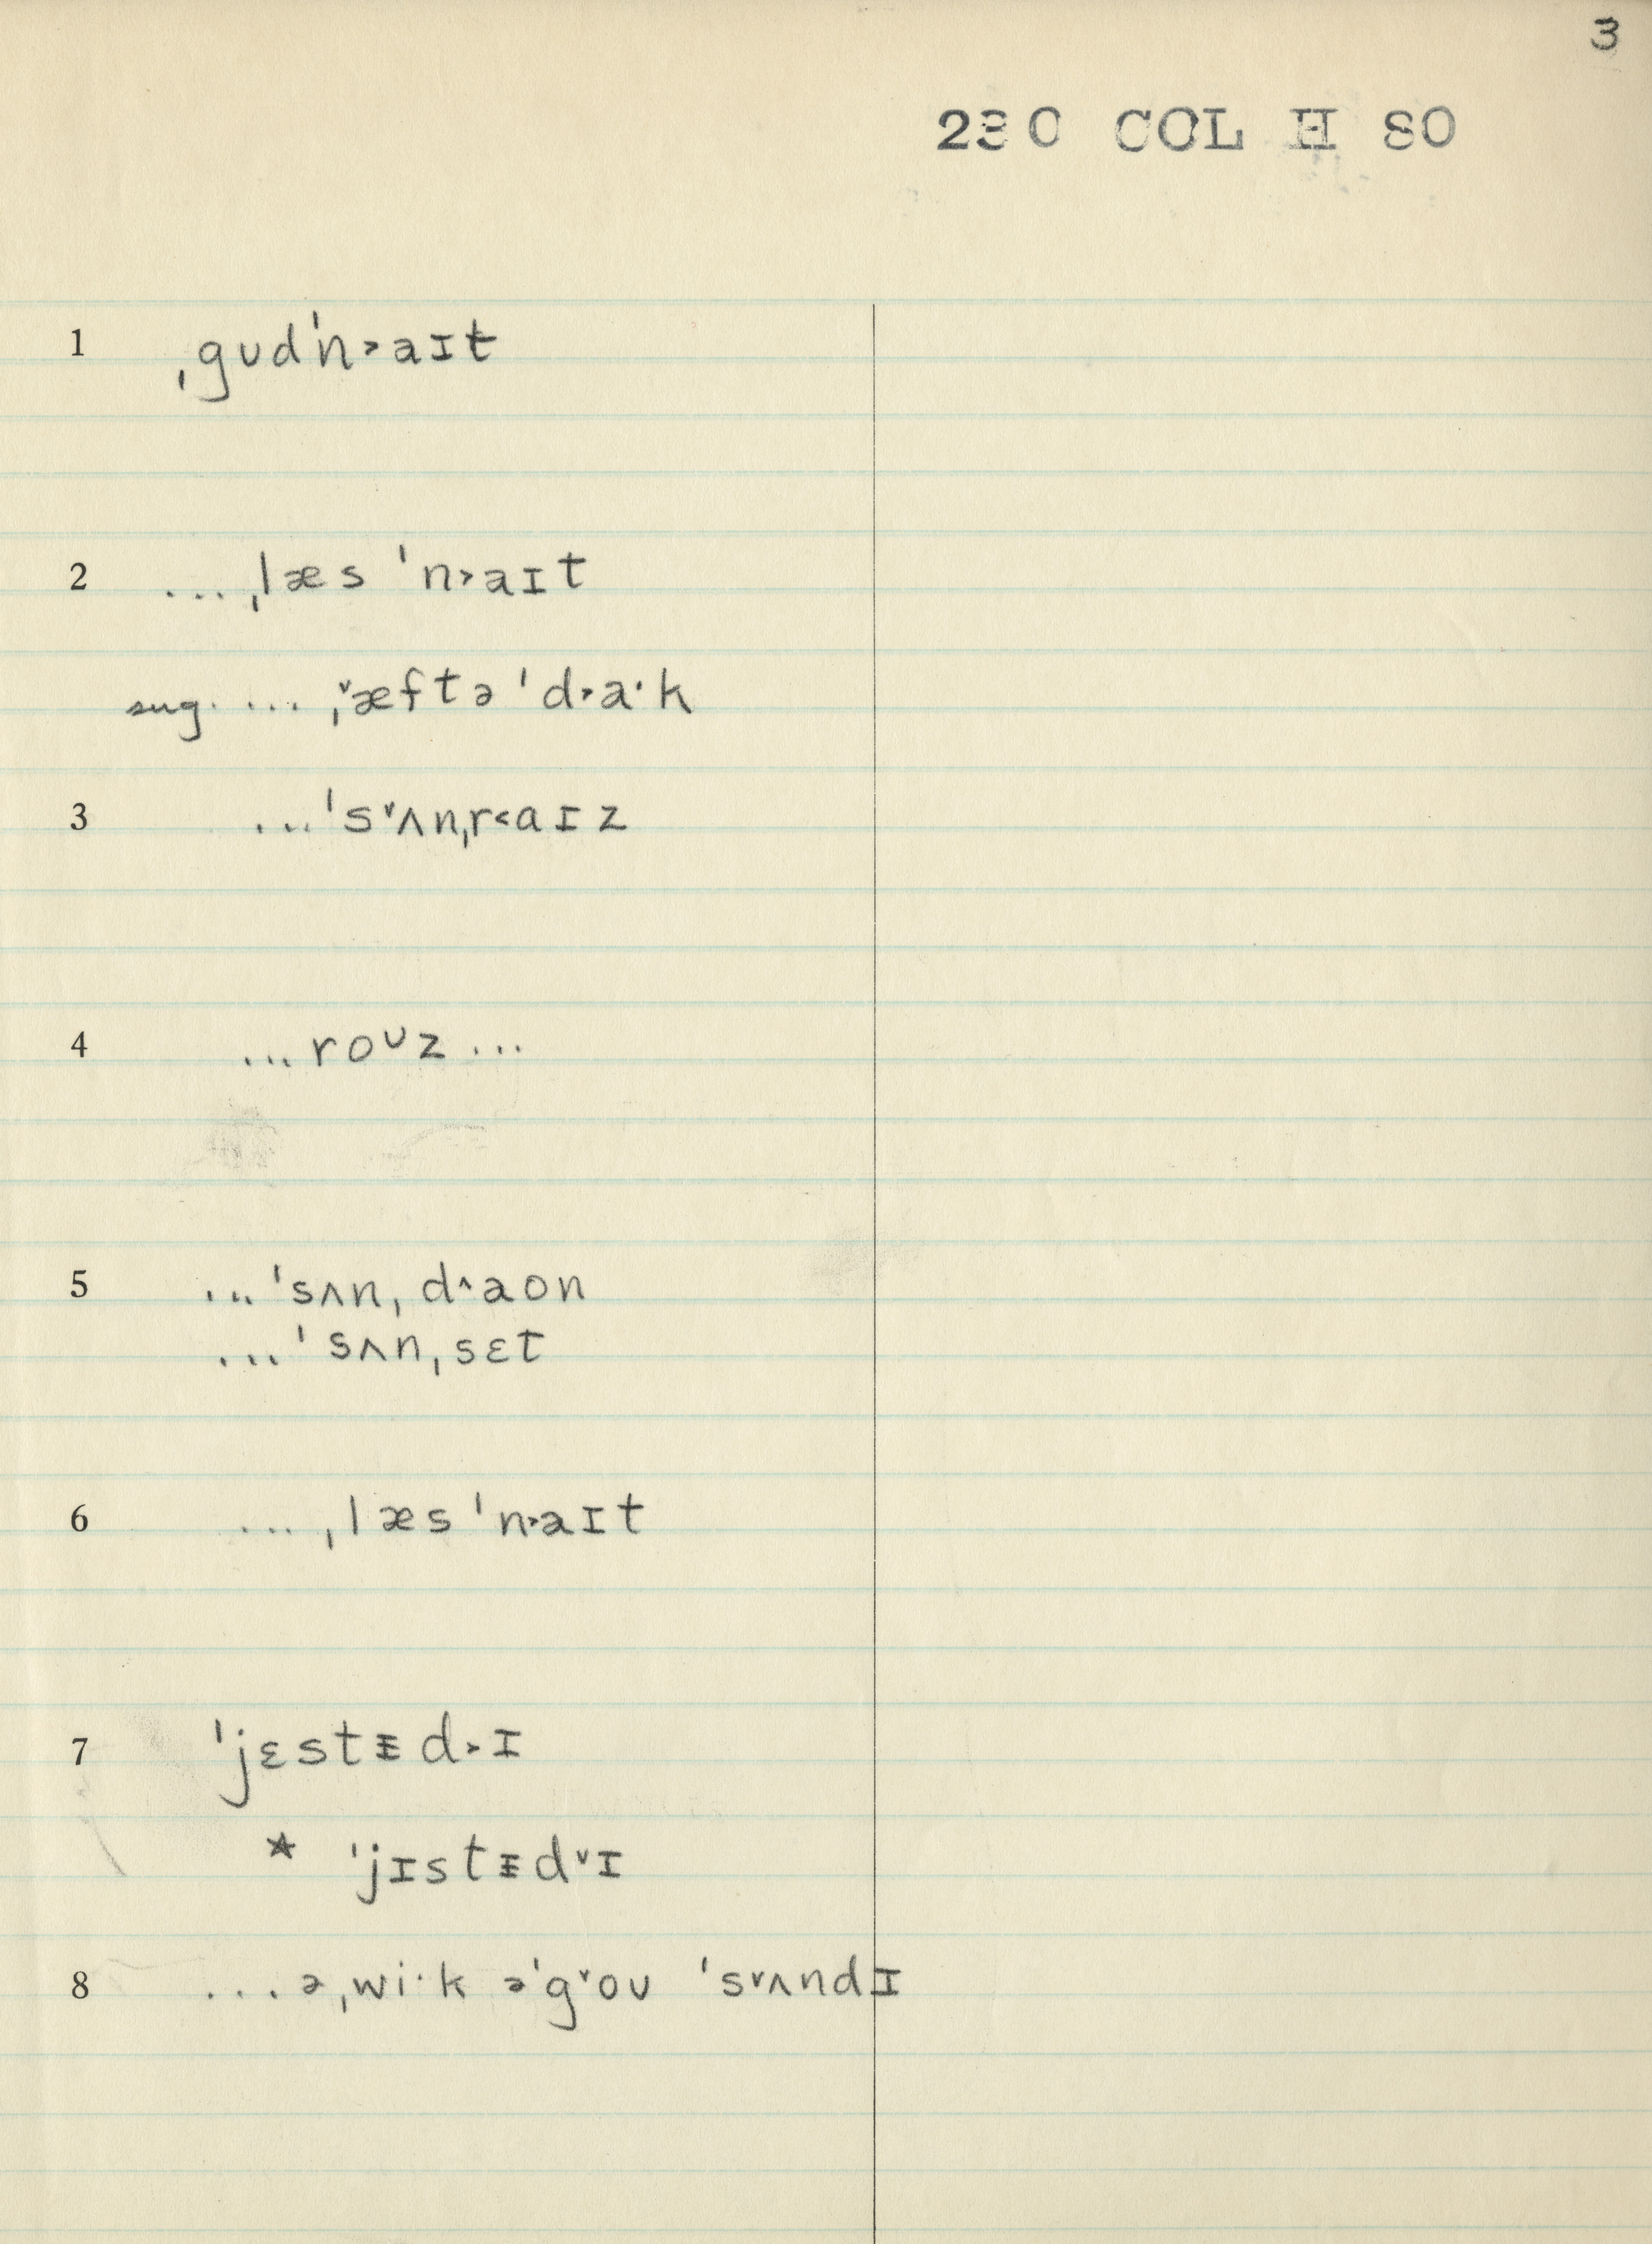 3
230 COL H 80
1 ˌgʊdˈn˃aɪt
2 ...ˌlæs ˈn˃aɪt
sug. ... ˌ˅æftə ˈd˃aˑk
3 ...ˈs˅ʌnˌr˂aɪz
4 ...roᶷz...
5 ...ˈsʌnˌd˄aon
...ˈsʌnˌsɛt
6 ...ˌlæs ˈn˃aɪt
7 ˈjɛstᵻd˃ɪ
* ˈjɪstᵻd˅ɪ
8 ...əˌwiˑk əˈg˅oʊ ˈs˅ʌndɪ